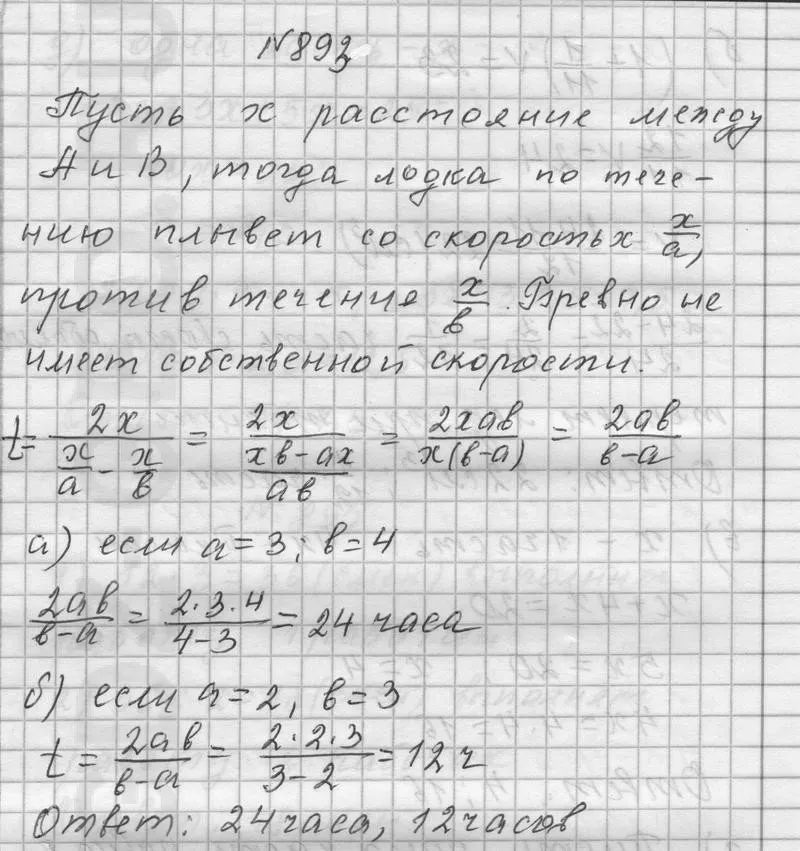 №893
Пусть x расстояние между
A и B, тогда лодка по тече-
нию плывет со скоростьх x/a,
против течения x/в. Бревно не
имеет собственной скорости.
t = 2x/(x/a - x/в) = 2x/((xв-ax)/aв) = 2xaв/x(в-a) = 2aв/в-a
а) если a=3; в=4
2aв/в-a = 2·3·4/4-3 = 24 часа
б) если a=2, в=3
t = 2aв/в-a = 2·2·3/3-2 = 12 ч
Ответ: 24 часа, 12 часов